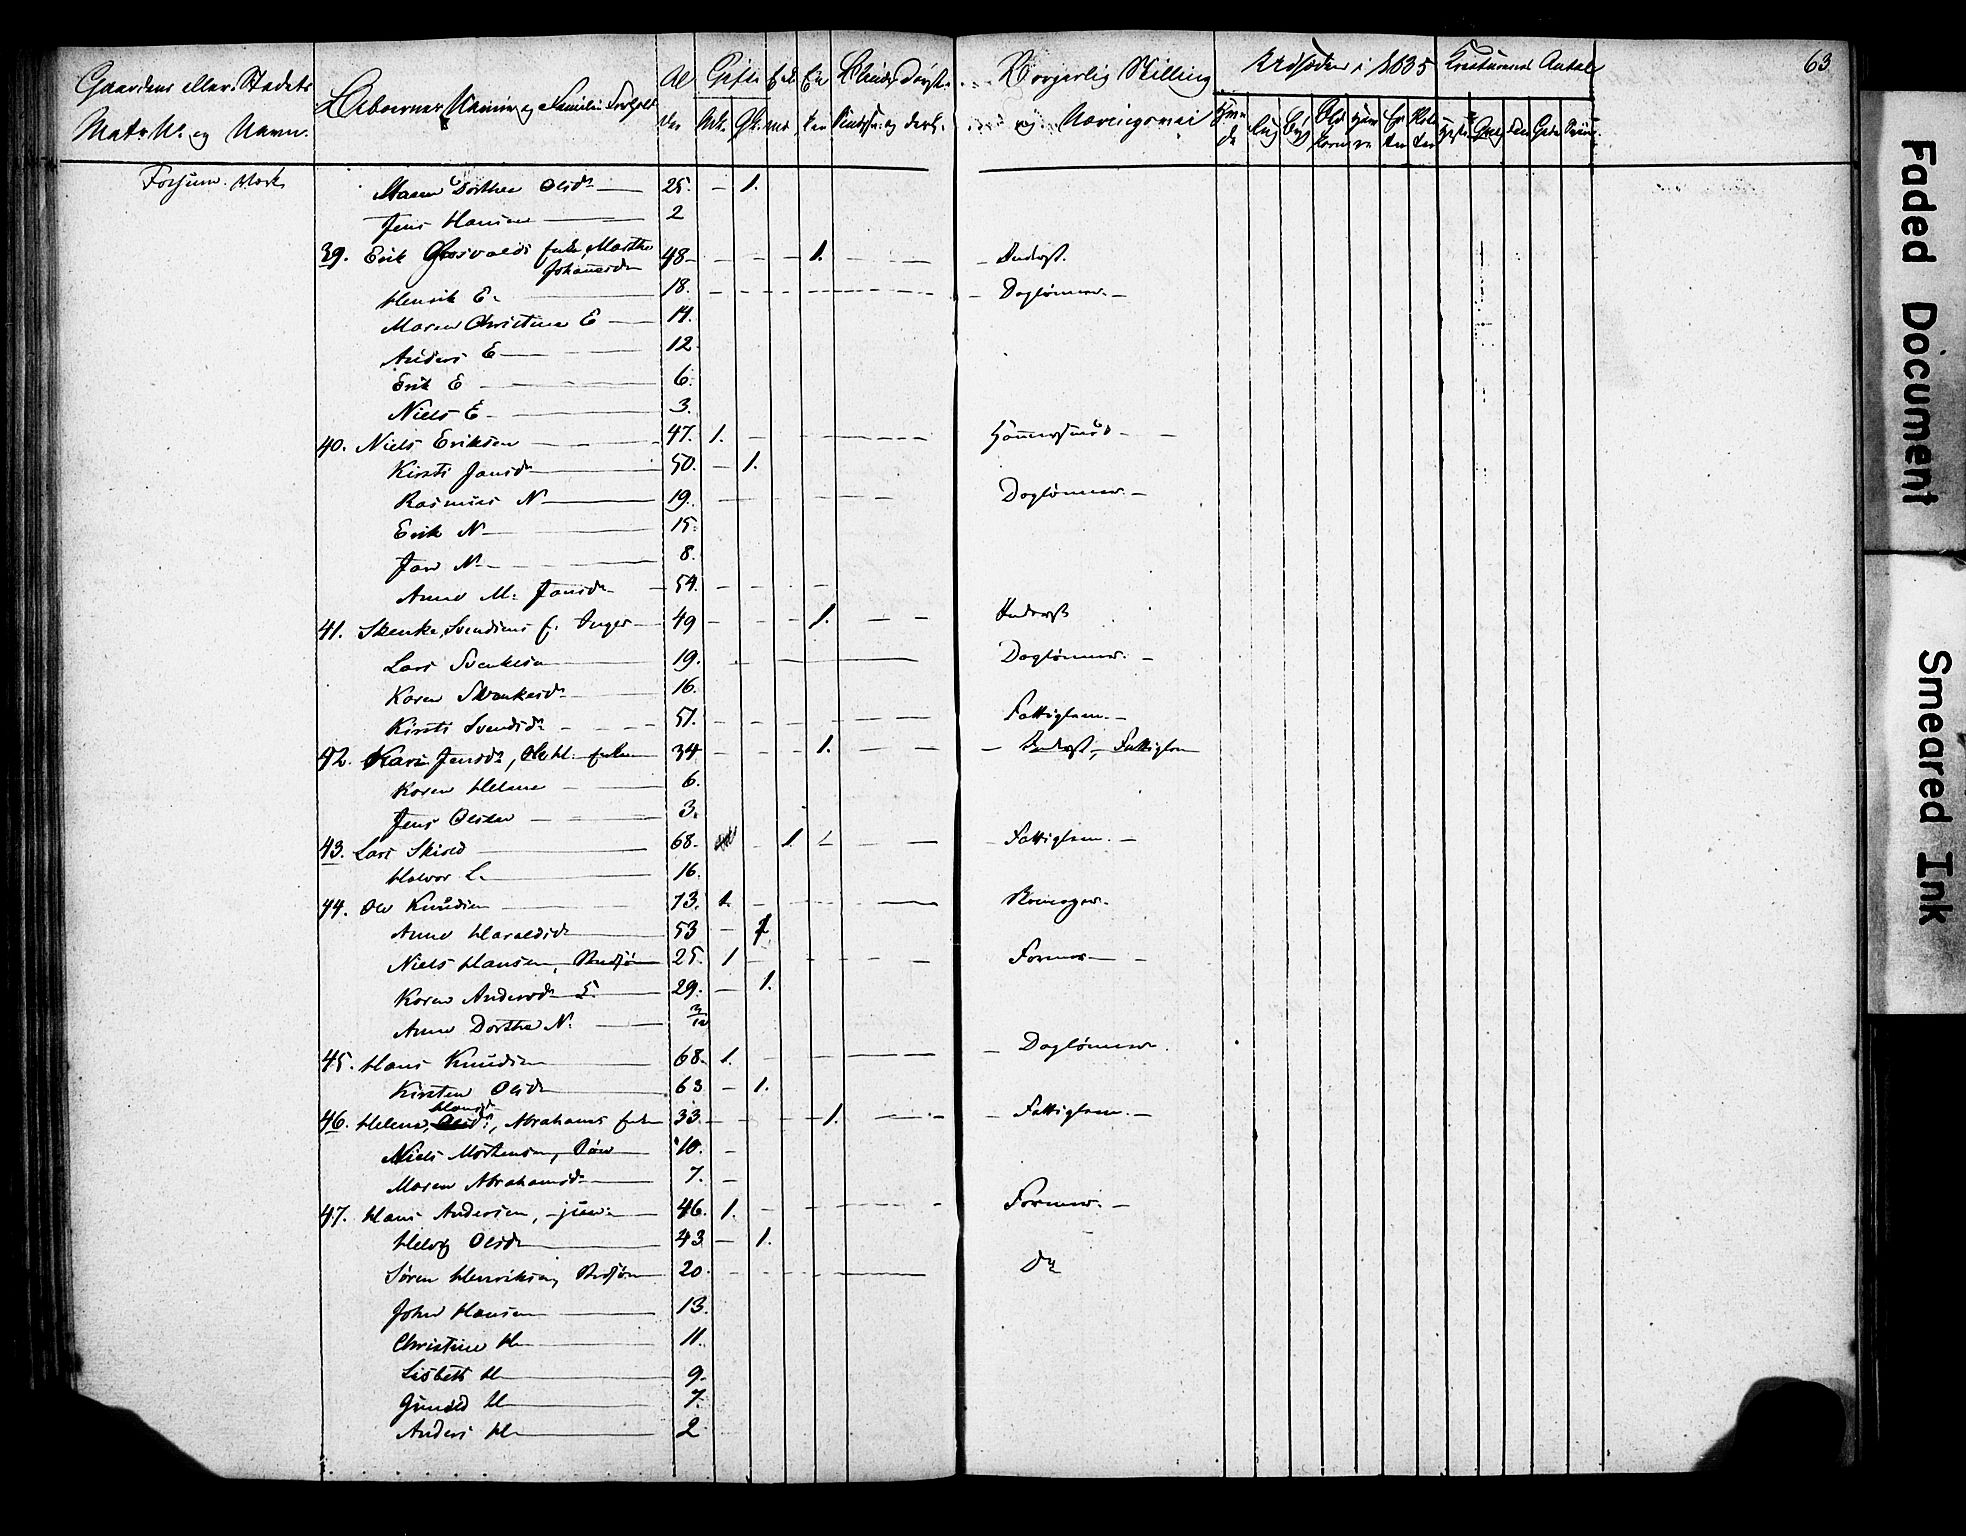 63
Gaardens eller Stædets Matr. No. og Navn.
Beboernes Navn og Familie Forhold
Al der
Gifte
Mk. Qk.
Enke md
En ker
Blinde, Døvst.
Borgerlig Stilling og Næringsvei
Udsæden i 1835
Kreaturenes Antal
Faded Document
Smeared Ink
Fossum Værk
Maren Dorthea Olsdr 25. 1.
Jens Hansen 2
39. Erik Enke, Marthe Johannesdr 48 1. Inderst.
Henrik E. 18. Daglønner.
Maren Christine E 14.
Anders E 12
Erik E 6.
Niels E 3.
40. Niels Eriksen 47. 1.
Kirsti Jansdr 50. 1.
Rasmus N 19. Daglønner.
Erik N 15.
Jan N. 8.
Anne M. Jansdr 54.
41. Skenke Svendsens e. Inger 49 1. Inderst
Lars Svenkesn 19. Daglønner.
Karen Skenkesdr 16.
Kirsti Svendsdr 51. Fattiglem.
42. Kari Jensdr, enke 34 1. Inderst, Fattiglem
Karen Helene 6.
Jens Olsen 3.
43. Lars Skired 68. 1 Fattiglem.
Halvor L. 16.
44. Ole Knudsen 73. 1.
Anne Haraldsdr 53 1.
Niels Hansen, Stedsøn 25. 1 Former
Karen Andersdr 29. 1.
Anne Dorthe N. 3/12
45. Hans Knudsen 68. 1. Daglønner.
Kirsten Olsdr 63 1.
46. Helene Hansdr, Abrahams Enke 33. 1. Fattiglem.
Niels Mortensen, Søn 10.
Maren Abrahamsdr 7.
47. Hans Andersen, jun. 46. 1. Former.
Helvig Olsdr 43. 1.
Søren Henriksen, Stedsøn 20. Do
John Hansen 13.
Christine H. 11.
Lisbeth H 9.
Gunild H 7.
Anders H. 2